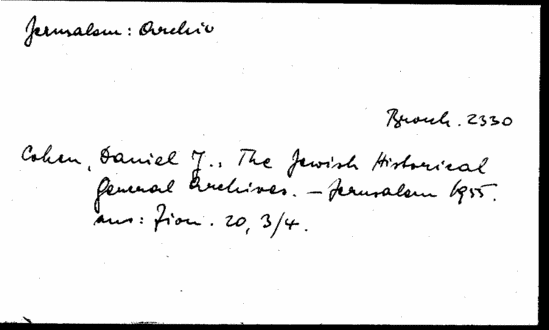 Jerusalem: Archiv
Brosch. 2330
Cohen, Daniel J., The Jewish Historical
General Archives. – Jerusalem 1955.
aus: Zion. 20, 3/4.